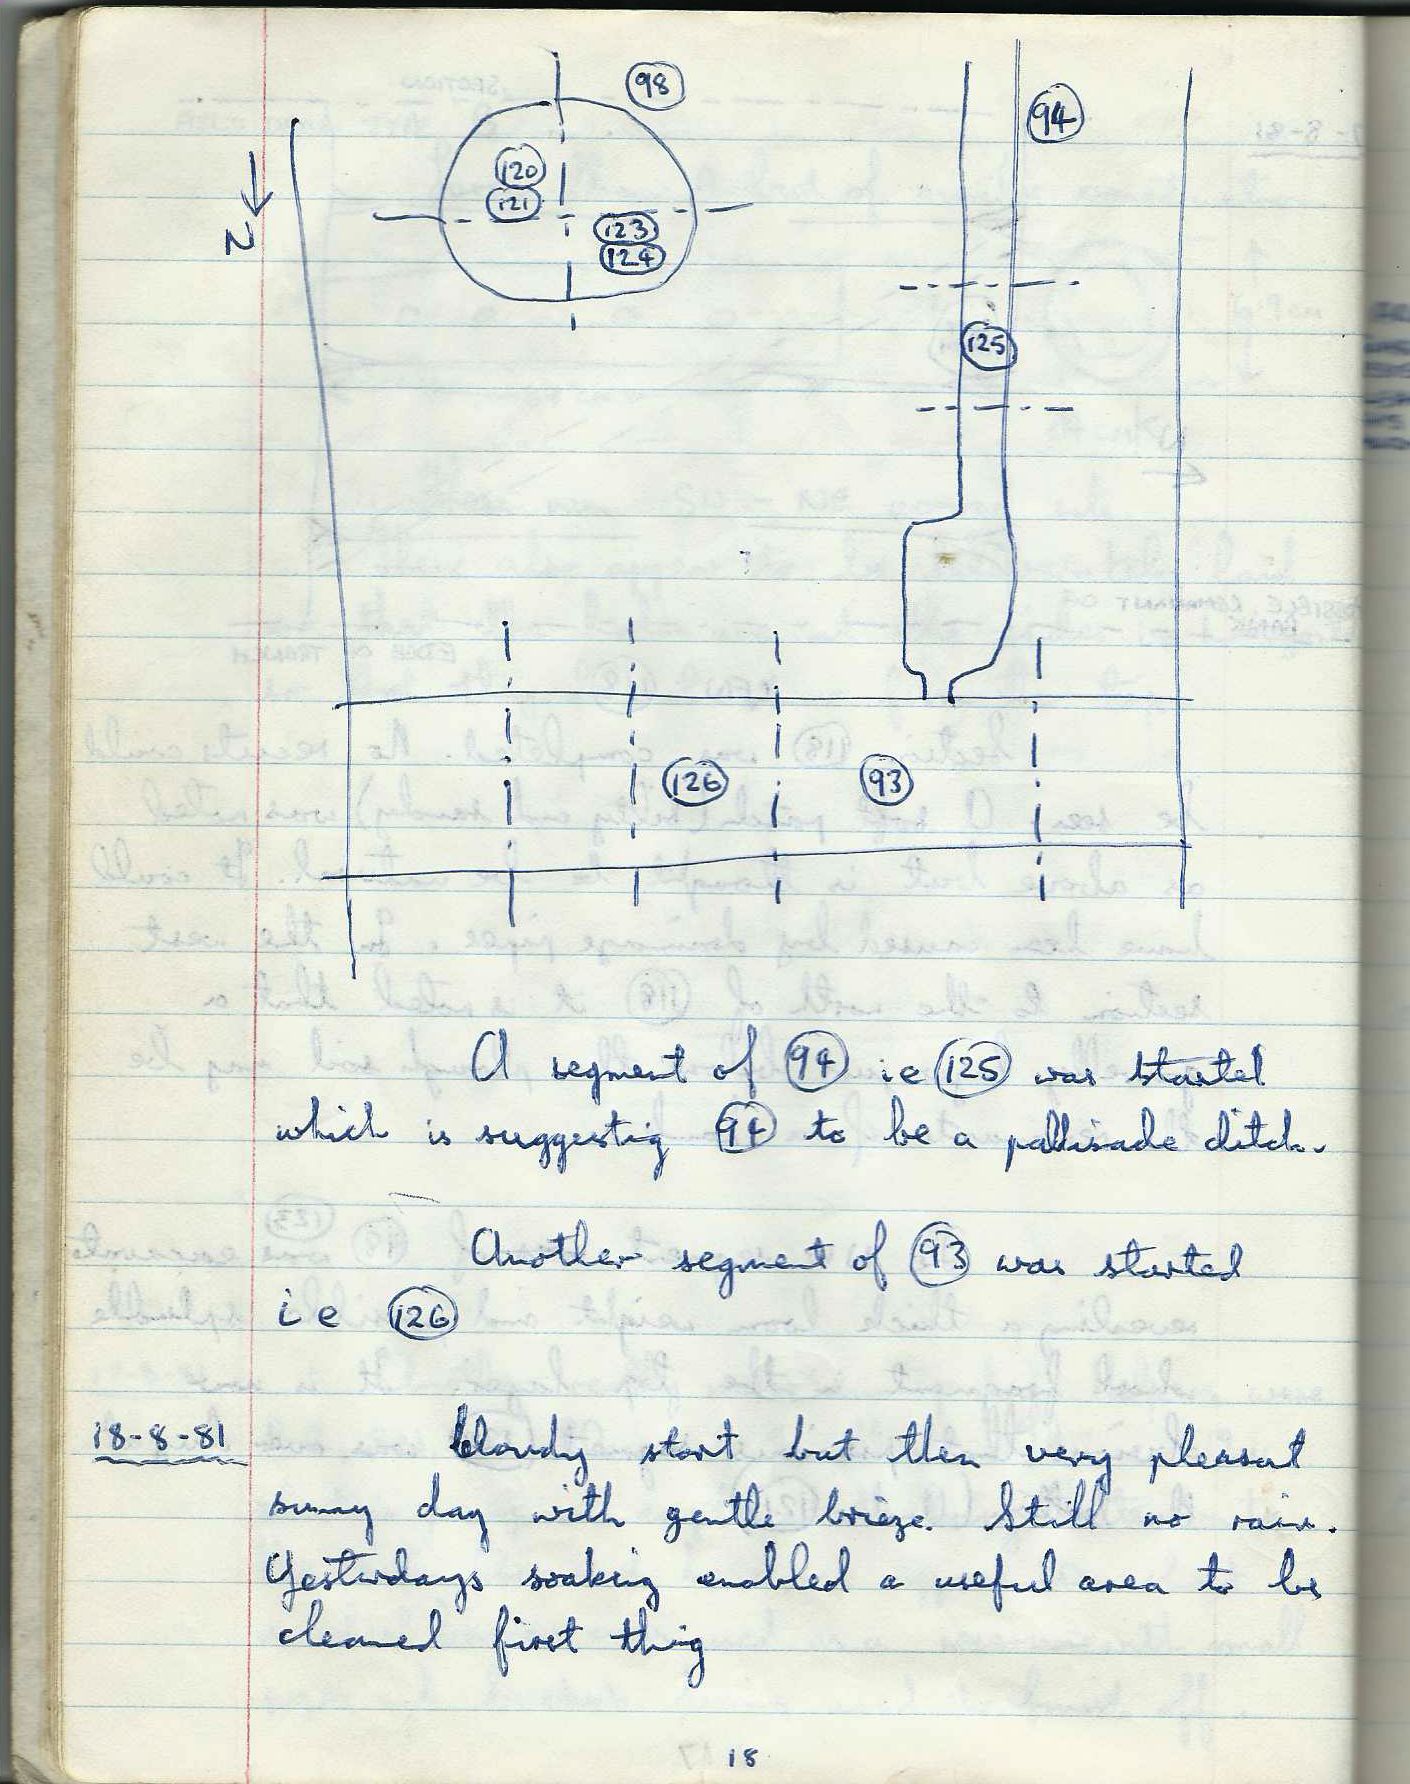 98
94
120
121
123
124
N
125
126
93
A segment of 94 ie 125 was started
which is suggestig 94 to be a pallisade ditch.
Another segment of 93 was started
ie 126
18-8-81
Cloudy start but then very pleasant
sunny day with gentle brieze. Still no rain.
Yesterdays soaking enabled a useful area to be
cleaned first thig
18